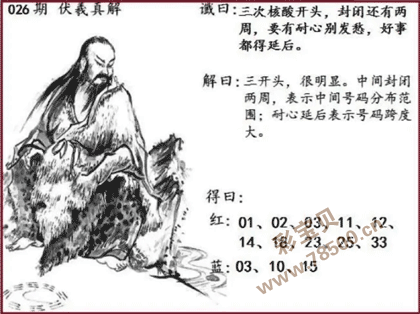 026期 伏羲真解
谶曰：三次核酸开头，封闭还有两
周，要有耐心别发愁，好事
都得延后。
解曰：三开头，很明显。中间封闭
两周，表示中间号码分布范
围；耐心延后表示号码跨度
大。
得曰：
红：01、02、03、11、12、
14、18、23、25、33
蓝：03、10、15
彩宝贝
www.78500.cn